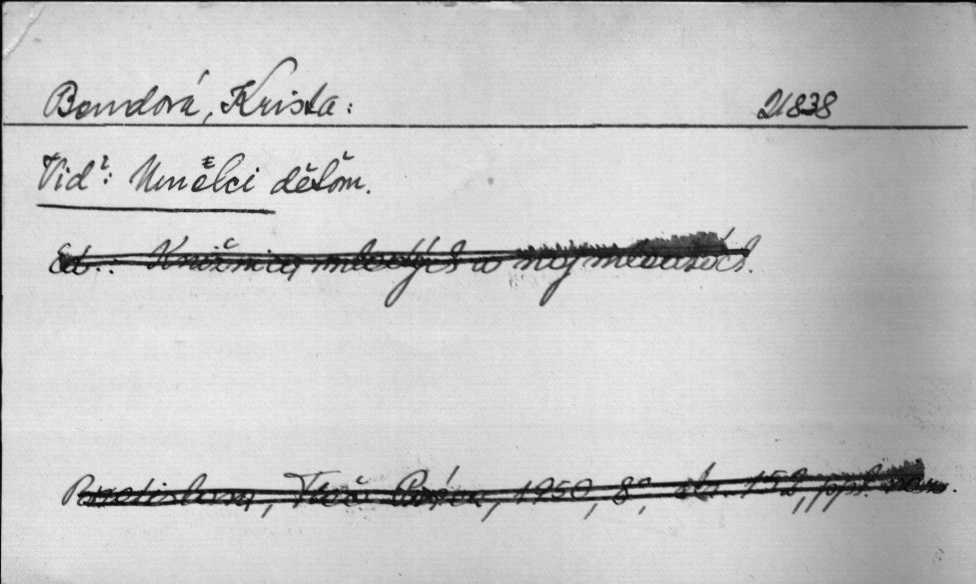 Bendová, Krista: 21838
Viď: Umělci dětom.
Ed.: Knižnica mladých a najmladších.
Bratislava, Tlač. Práca, 1950, 8°, str. 152, ppl.